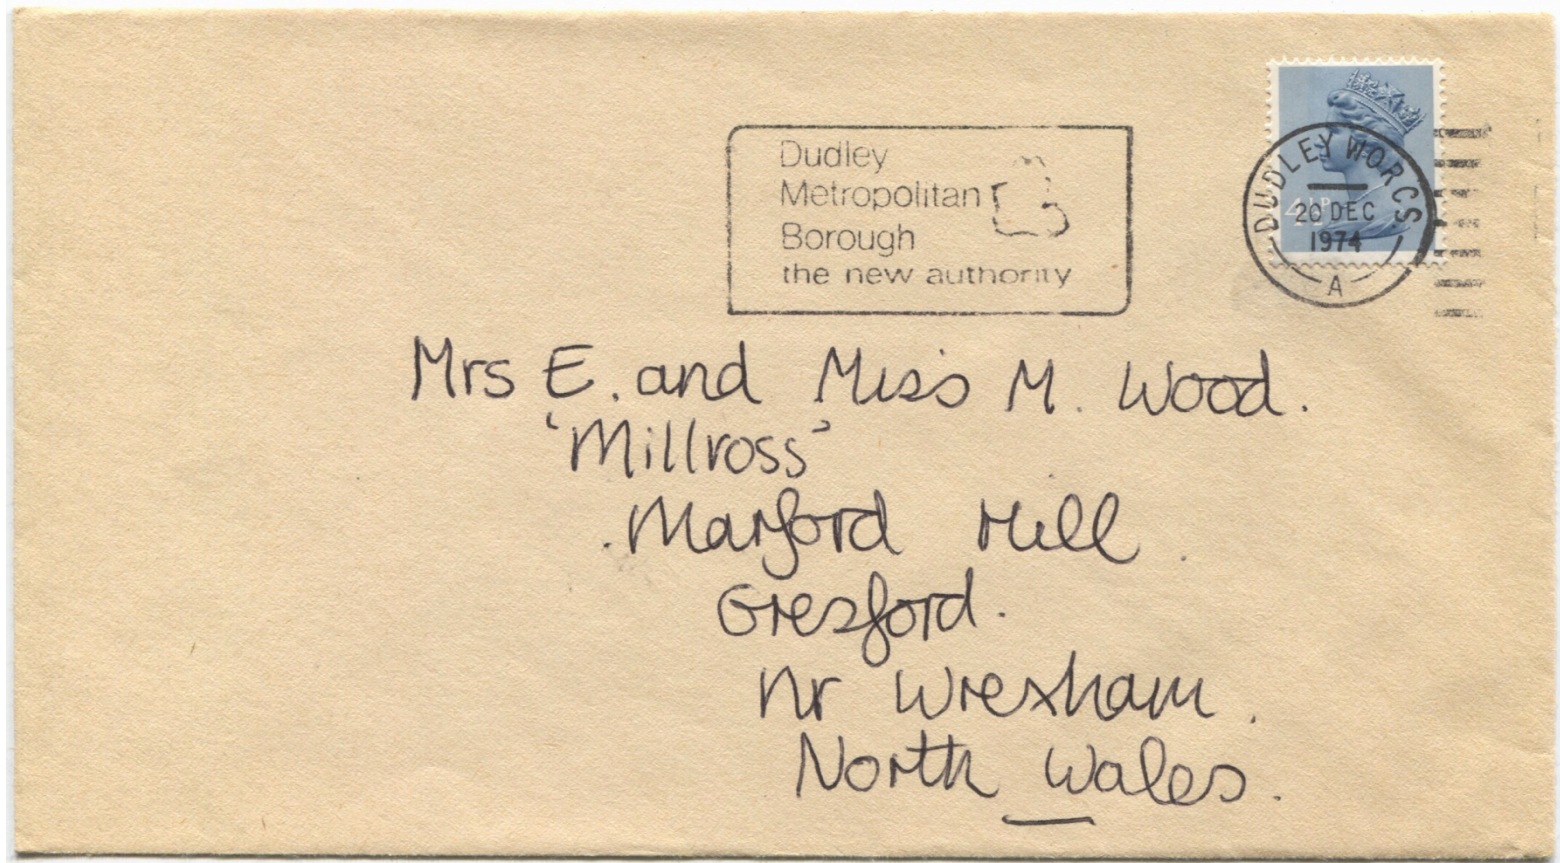 Dudley
Metropolitan
Borough
the new authority
DUDLEY WORCS
20 DEC
1974
A
4½P
Mrs E. and Miss M. Wood.
'Millross'
Marford Hill
Gresford.
Nr Wrexham.
North Wales.